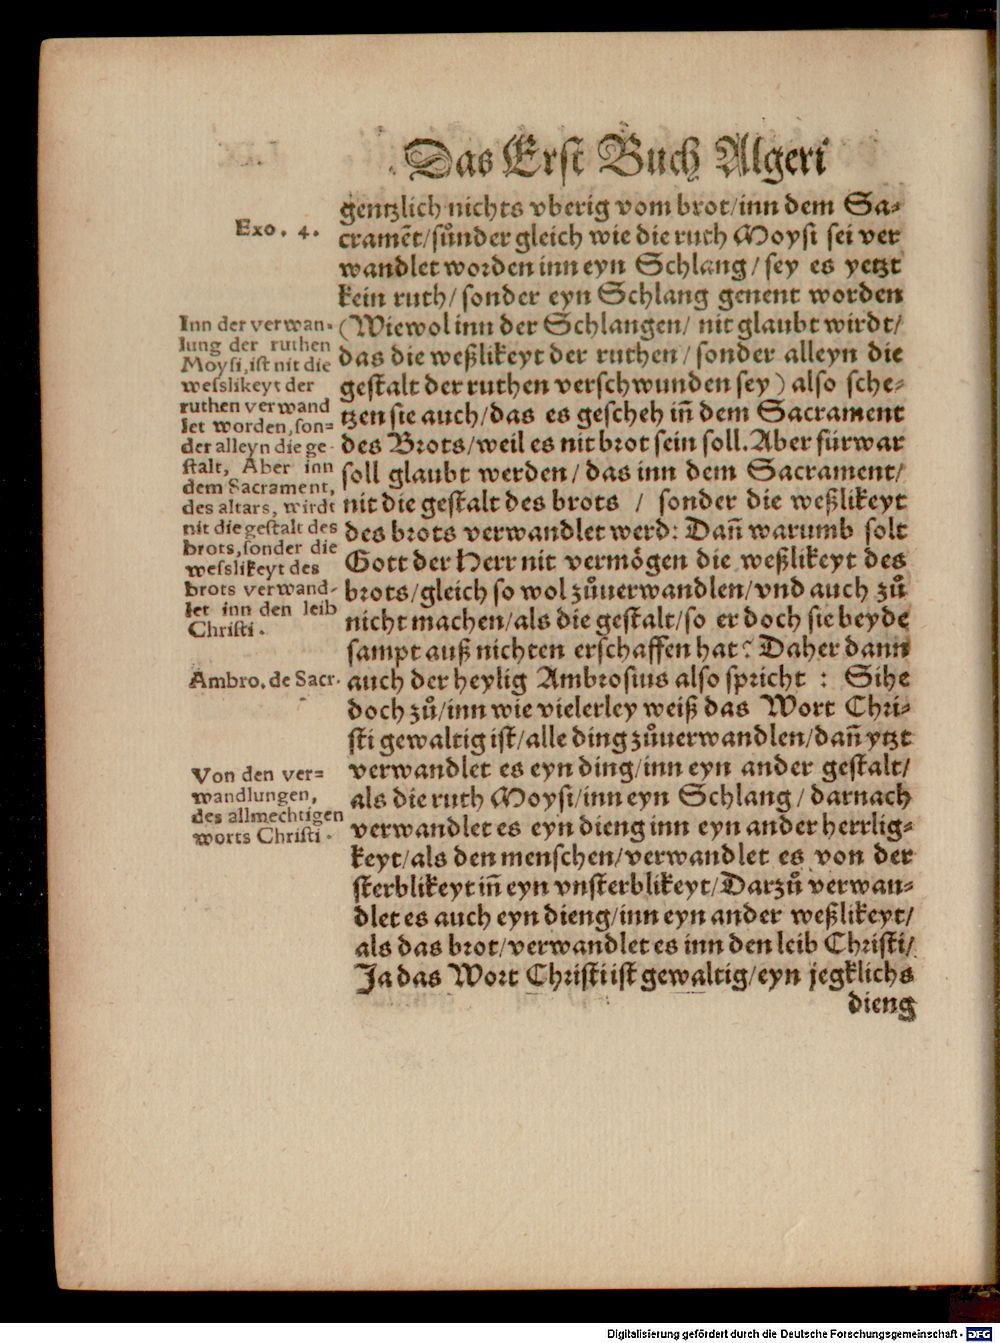 Das Erst Buch Algeri
gentzlich nichts vberig vom brot/inn dem Sa⸗
cramẽt/sůnder gleich wie die ruth Moysi sei ver
wandlet worden inn eyn Schlang/sey es yetzt
kein ruth/sonder eyn Schlang genent worden
(Wiewol inn der Schlangen/ nit glaubt wirdt/
das die weßlikeyt der ruthen/sonder alleyn die
gestalt der ruthen verschwunden sey) also sche⸗
tzen sie auch/das es gescheh iñ dem Sacrament
des Brots/weil es nit brot sein soll. Aber fürwar
soll glaubt werden/das inn dem Sacrament/
nit die gestalt des brots / sonder die weßlikeyt
des brots verwandlet werd: Dañ warumb solt
Gott der Herr nit vermögen die weßlikeyt des
brots/gleich so wol zůuerwandlen/vnd auch zů
nicht machen/als die gestalt/so er doch sie beyde
sampt auß nichten erschaffen hat? Daher dann
auch der heylig Ambrosius also spricht : Sihe
doch zů/inn wie vielerley weiß das Wort Chri⸗
sti gewaltig ist/alle ding zůuerwandlen/dañ ytzt
verwandlet es eyn ding/inn eyn ander gestalt/
als die ruth Moysi/inn eyn Schlang/darnach
verwandlet es eyn dieng inn eyn ander herrlig⸗
keyt/als den menschen/verwandlet es von der
sterblikeyt iñ eyn vnsterblikeyt/Darzů verwan⸗
dlet es auch eyn dieng/inn eyn ander weßlikeyt/
als das brot/verwandlet es inn den leib Christi/
Ja das Wort Christi ist gewaltig/eyn jegklichs
dieng
Exo. 4.
Inn der verwan-
lung der ruthen
Moysi, ist nit die
wesslikeyt der
ruthen verwand
let worden, son=
der alleyn die ge-
stalt, Aber inn
dem Sacrament,
des altars, wirdt
nit die gestalt des
brots, sonder die
wesslikeyt des
brots verwand-
let inn den leib
Christi.
Ambro. de Sacr.
Von den ver=
wandlungen,
des allmechtigen
worts Christi.
Digitalisierung gefördert durch die Deutsche Forschungsgemeinschaft - DFG